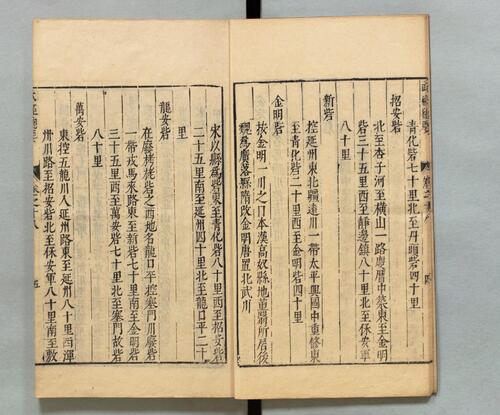 青化砦七十里北至丹頭砦四十里
招安砦
北至杏子河至橫山一路慶曆中築東至金明
砦三十五里西至靜邊鎮八十里北至保安軍
八十里
新砦
控延州東北疆遠川一帶太平興國中重脩東
至青化砦二十里西至金明砦四十里
金明砦
按金明一川之口本漢高奴縣地董翳所居後
魏為廣洛縣隋改金明唐置北武川
宋以縣為砦東至青化砦八十里西至招安砦
二十五里南至延州四十里北至龍口平二十
里
龍安砦
在廢栲栳砦之西地名龍口平控塞門川廢砦
一帶戎馬來路東至新砦七十里南至金明砦
三十五里西至萬安砦七十里北至塞門故砦
八十里
萬安砦
東控五龍川入延州路東至延州八十里西渾
州川路至招安砦北至保安軍八十里南至敷